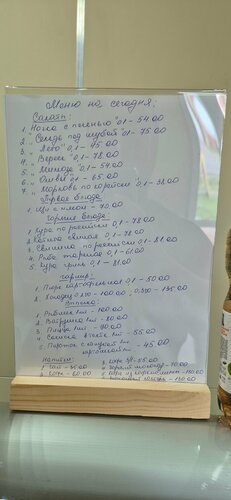 Меню на сегодня:
Салаты
1. Ночка с печенью" 0,1 - 54.00
2. " Сельдь под шубой" 0,1 - 75.00
3. " Лето" 0,1 - 45.00
4. " Верес" 0,1 - 78.00
5. " Мимоза" 0,1 - 54.00
6. " Оливье" 0,1 - 65.00
7. " Морковь по корейски" 0,1 - 38.00
Первое блюдо:
1. Щи с мясом - 70.00
Горячие блюда:
1. Кура по российски 0,1 - 78.00
2. свиная 0,1 - 78.00
3. Свинина по российски 0,1 - 81.00
4. Рыба тушеная 0,1 - 61.00
5. Кура гриль 0,1 - 81.00
гарнир:
1. Пюре картофельное 0,1 - 50.00
2. 0,250 - 100.00, 0,350 - 135.00
Выпечка:
1. Рыбник 1шт - 100.00
2. Ватрушка 1шт - 80.00
3. Пицца 1шт - 90.00
4. Сосиска в тесте 1шт - 55.00
5. Пирожок с капустой 1шт - 45.00
картошкой
Напитки:
1. Чай - 35.00
2. Кофе - 60.00
3. Кофе 3/1 - 35.00
4. Горячий шоколад - 70.00